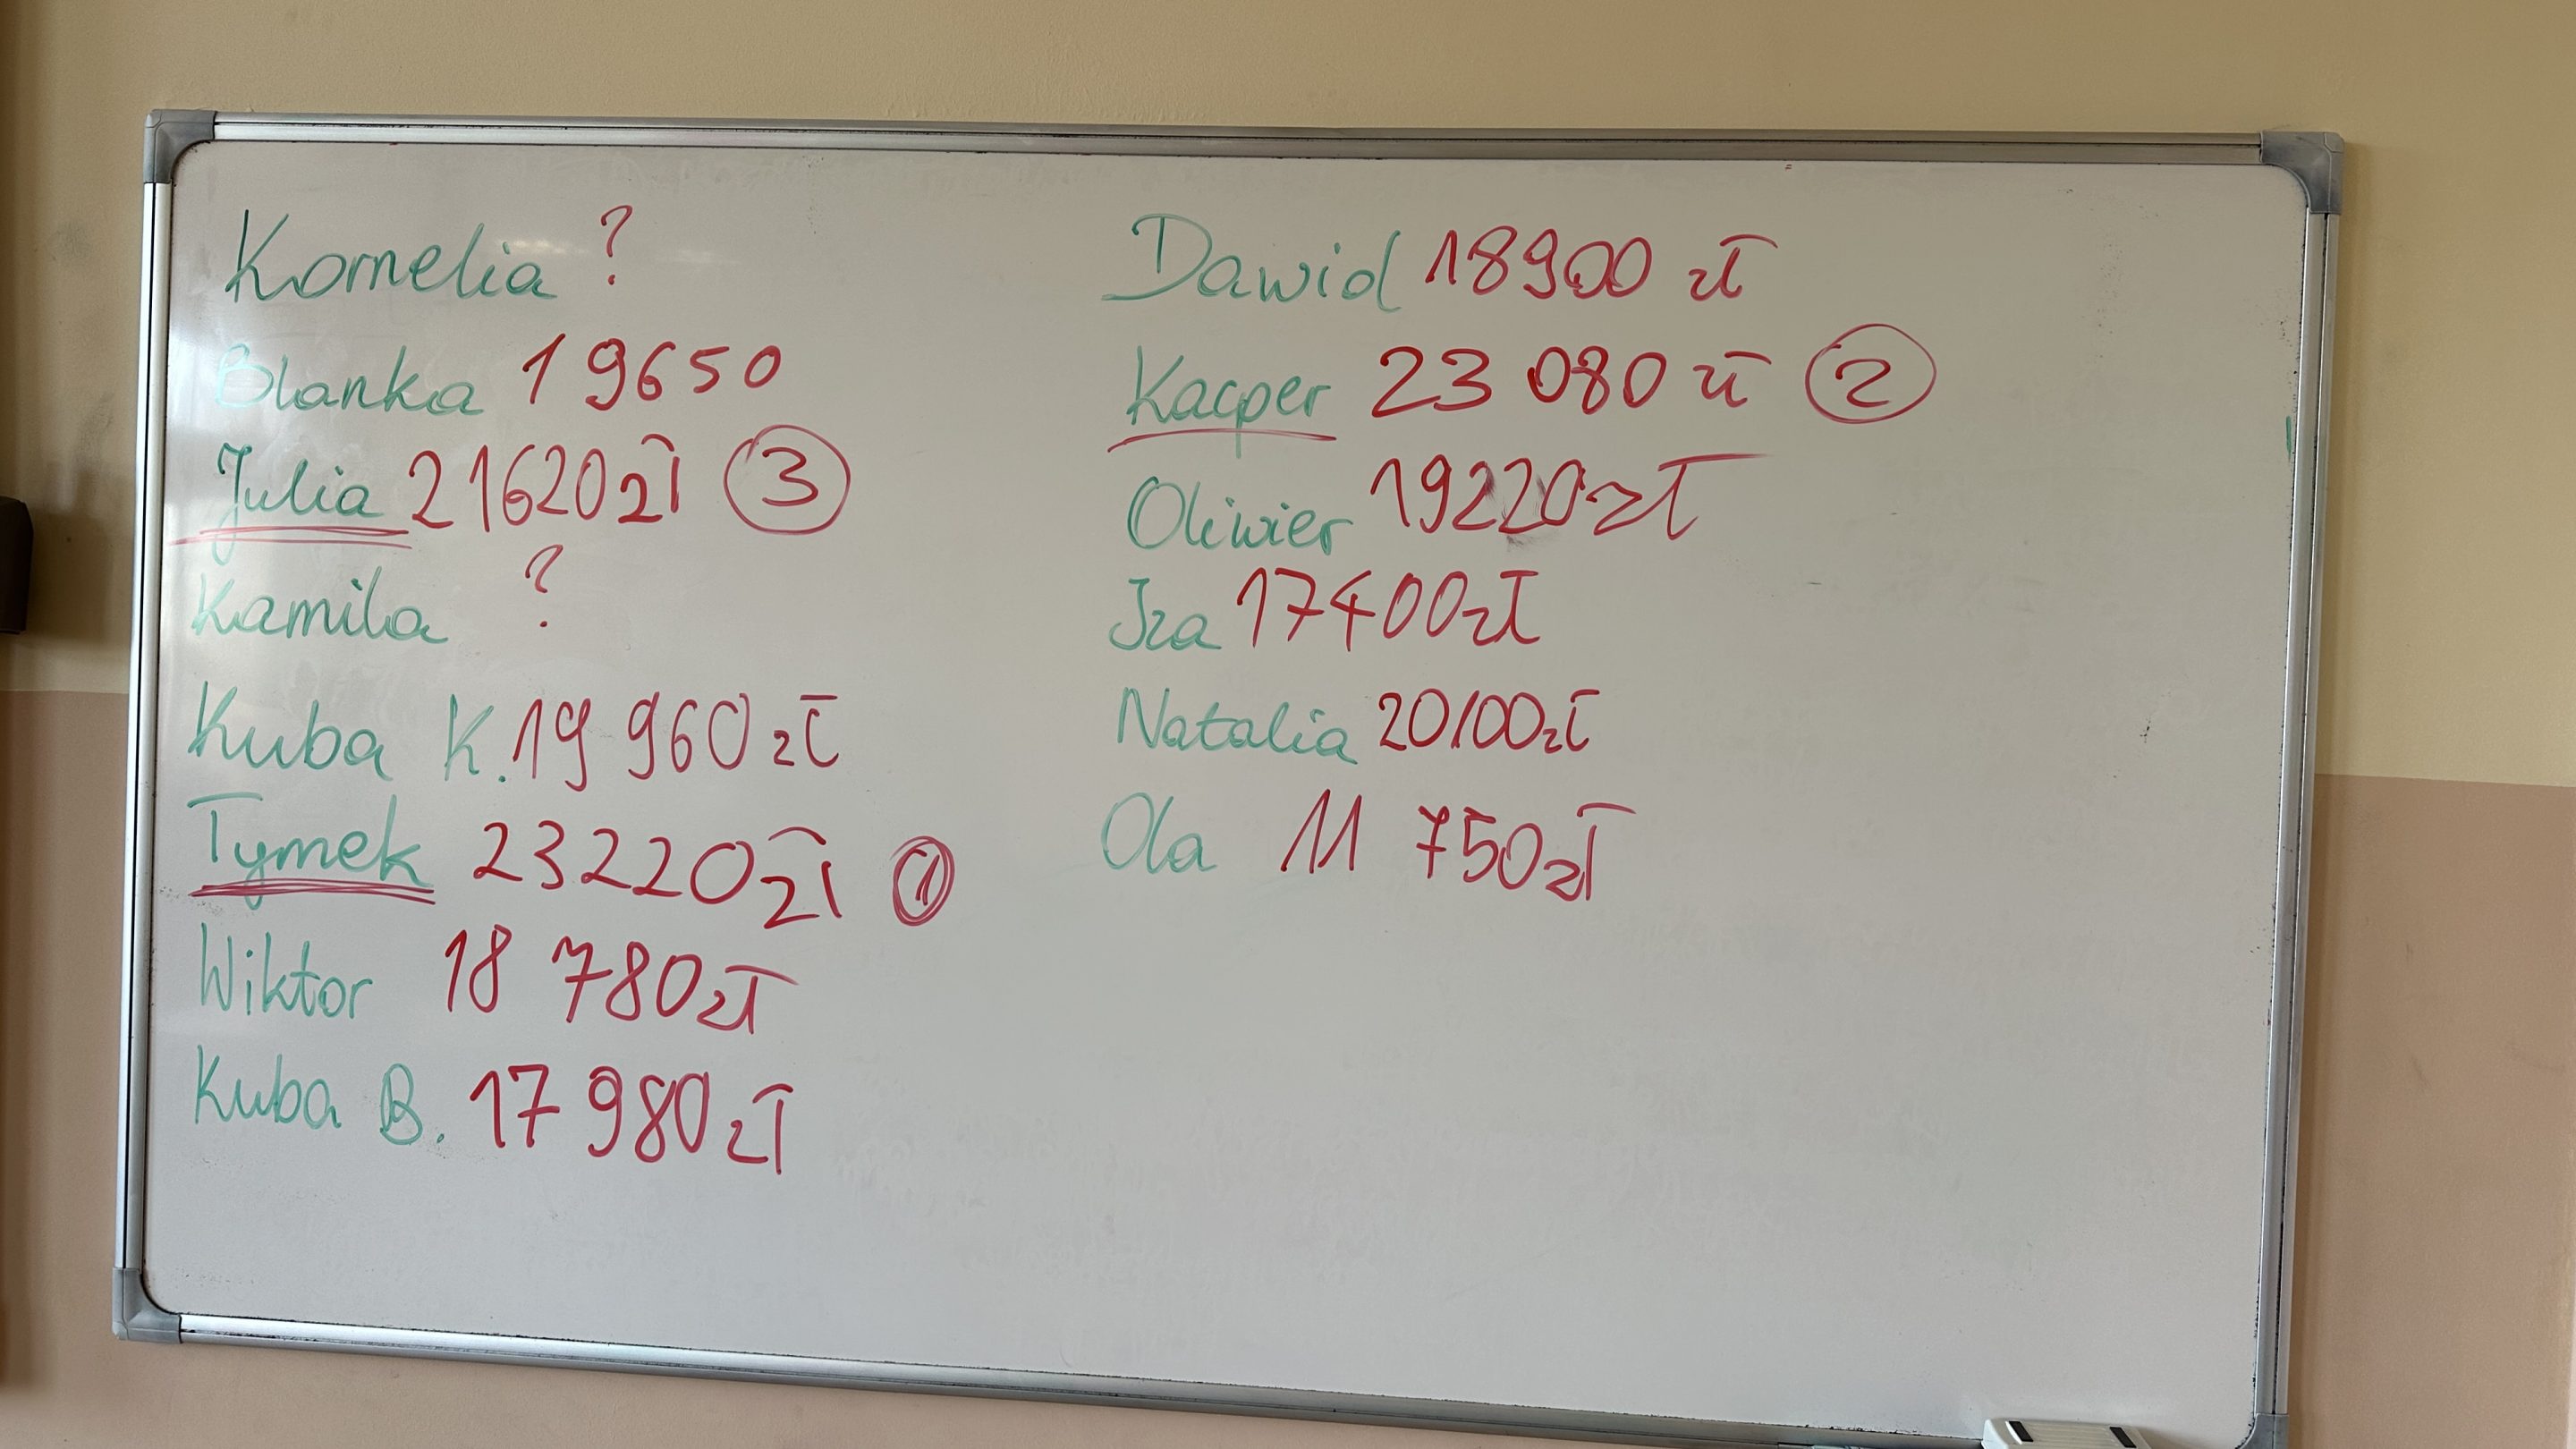 Kornelia ?
Blanka 19650
Julia 21620zł 3
Kamila ?
Kuba K. 19 960zł
Tymek 23220zł 1
Wiktor 18 780zł
Kuba B. 17 980zł
Dawid 18900 zł
Kacper 23 080 zł 2
Oliwier 19220zł
Iza 17400zł
Natalia 20100zł
Ola 11 750zł